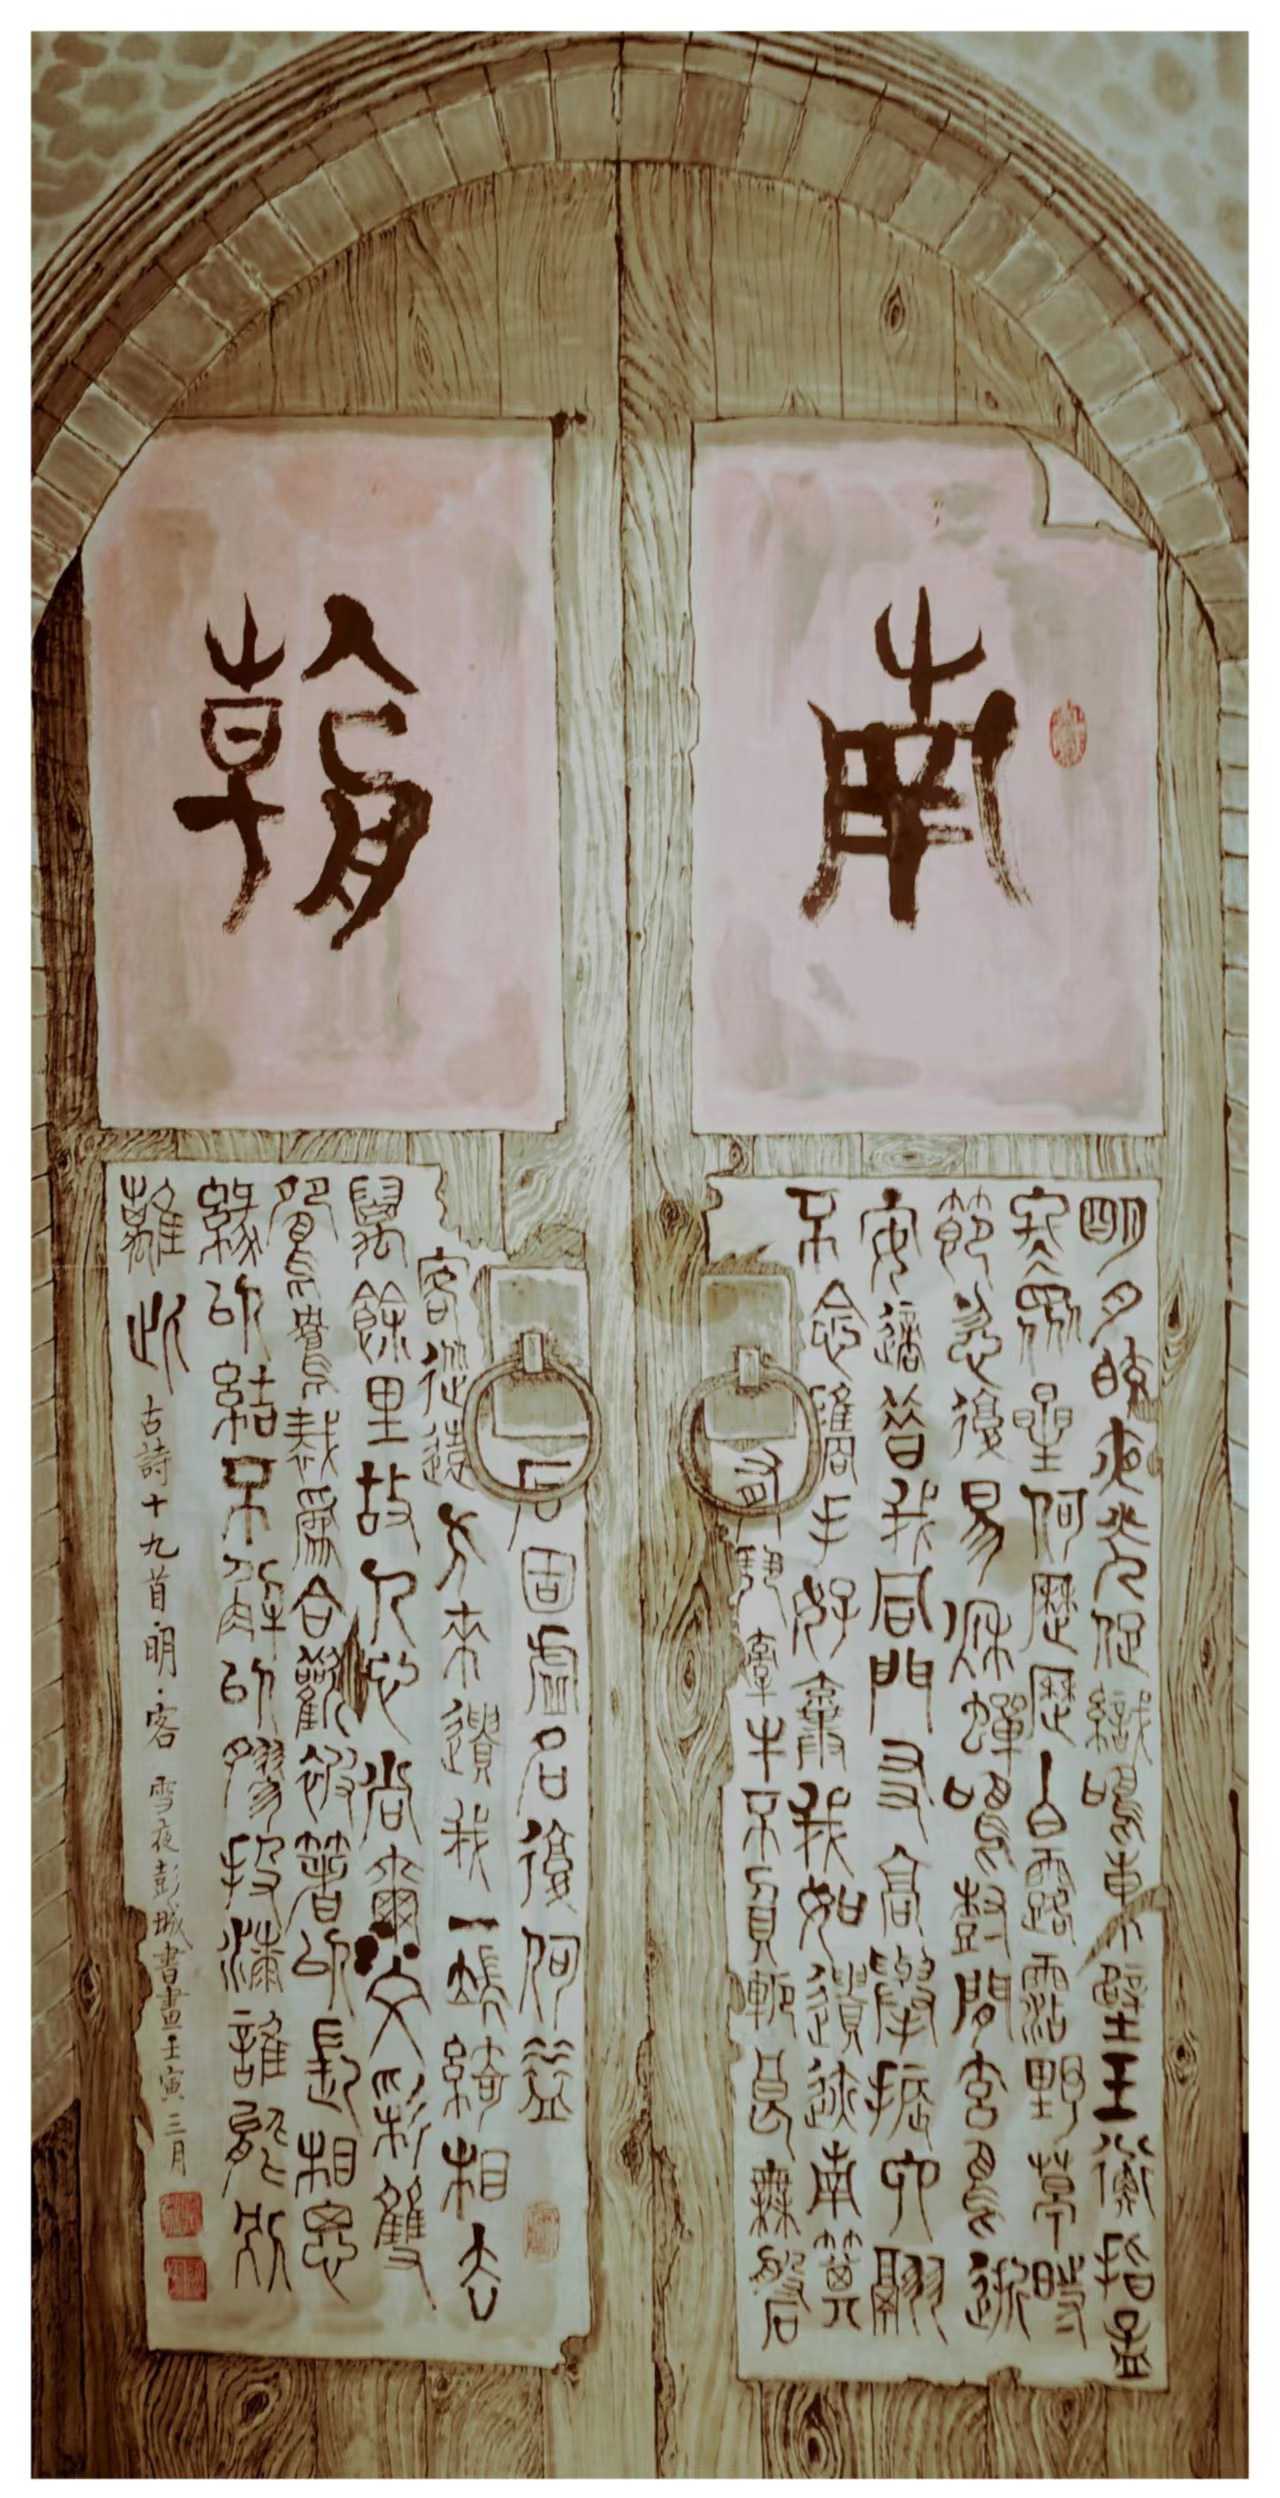 南
翰
明月皎夜光促織鳴東壁玉衡指孟
冬眾星何歷歷白露霑野草時
節忽復易秋蟬鳴樹間玄鳥逝
安適昔我同門友高舉振六翮
不念攜手好棄我如遺跡南箕
有斗牽牛不負軛良無磐
石固虛名復何益
客從遠方來遺我一端綺相去
萬餘里故人心尚爾文彩雙
鴛鴦裁為合歡被著以長相思
緣以結不解以膠投漆誰能別
離此 古詩十九首·明·客 雪夜彭城書畫壬寅三月